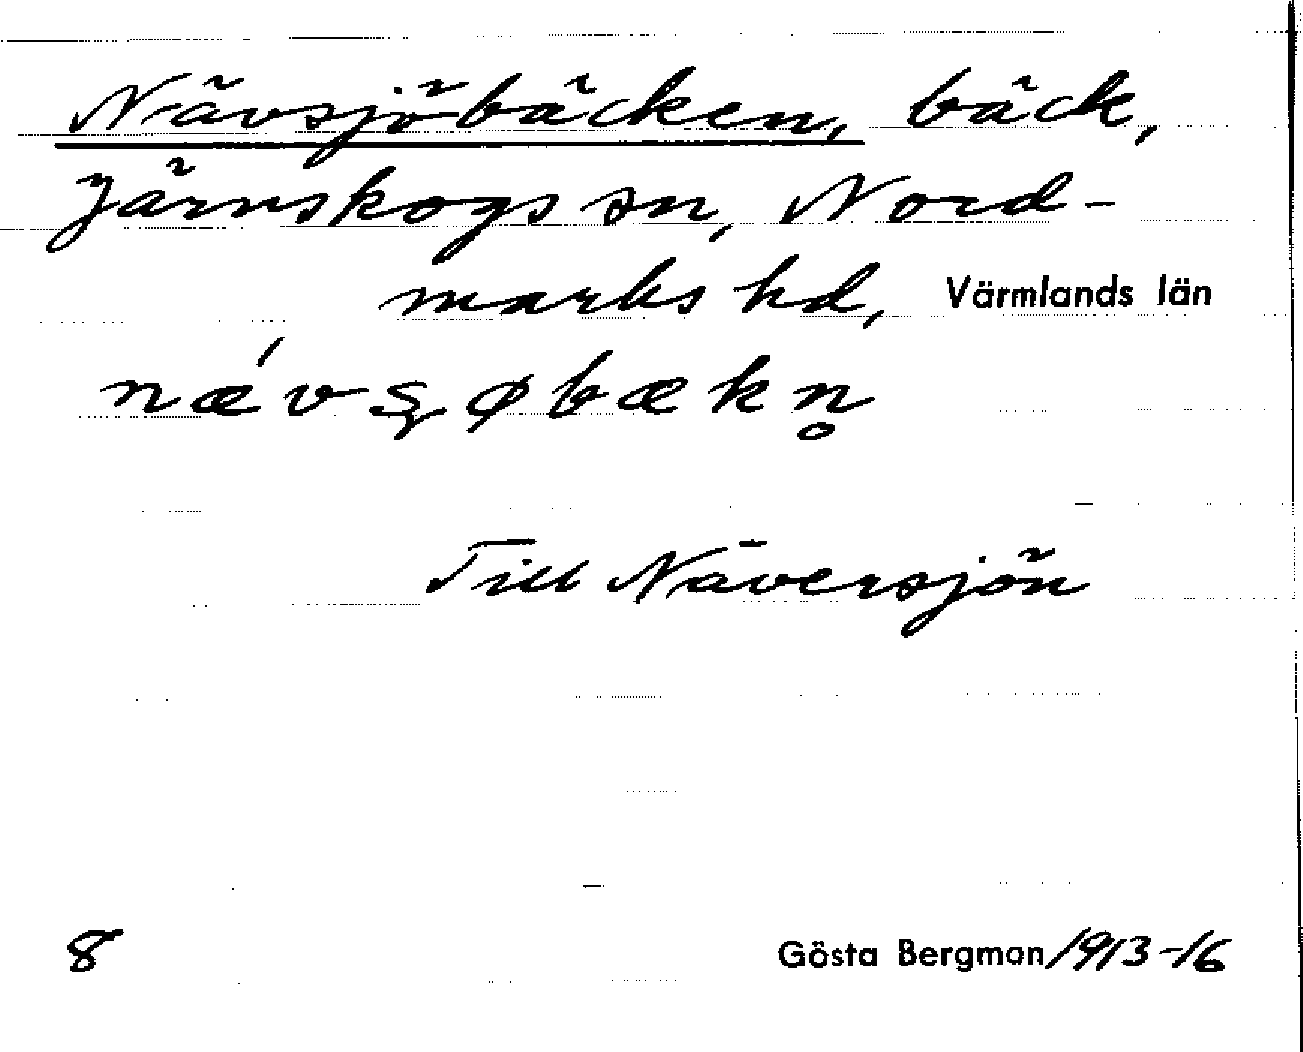 Nävsjöbäcken, bäck,
Järnskogs sn, Nord-
marks hd, Värmlands län
næ´vʂøbækn̥
Till Näversjön
8 Gösta Bergman 1913-16